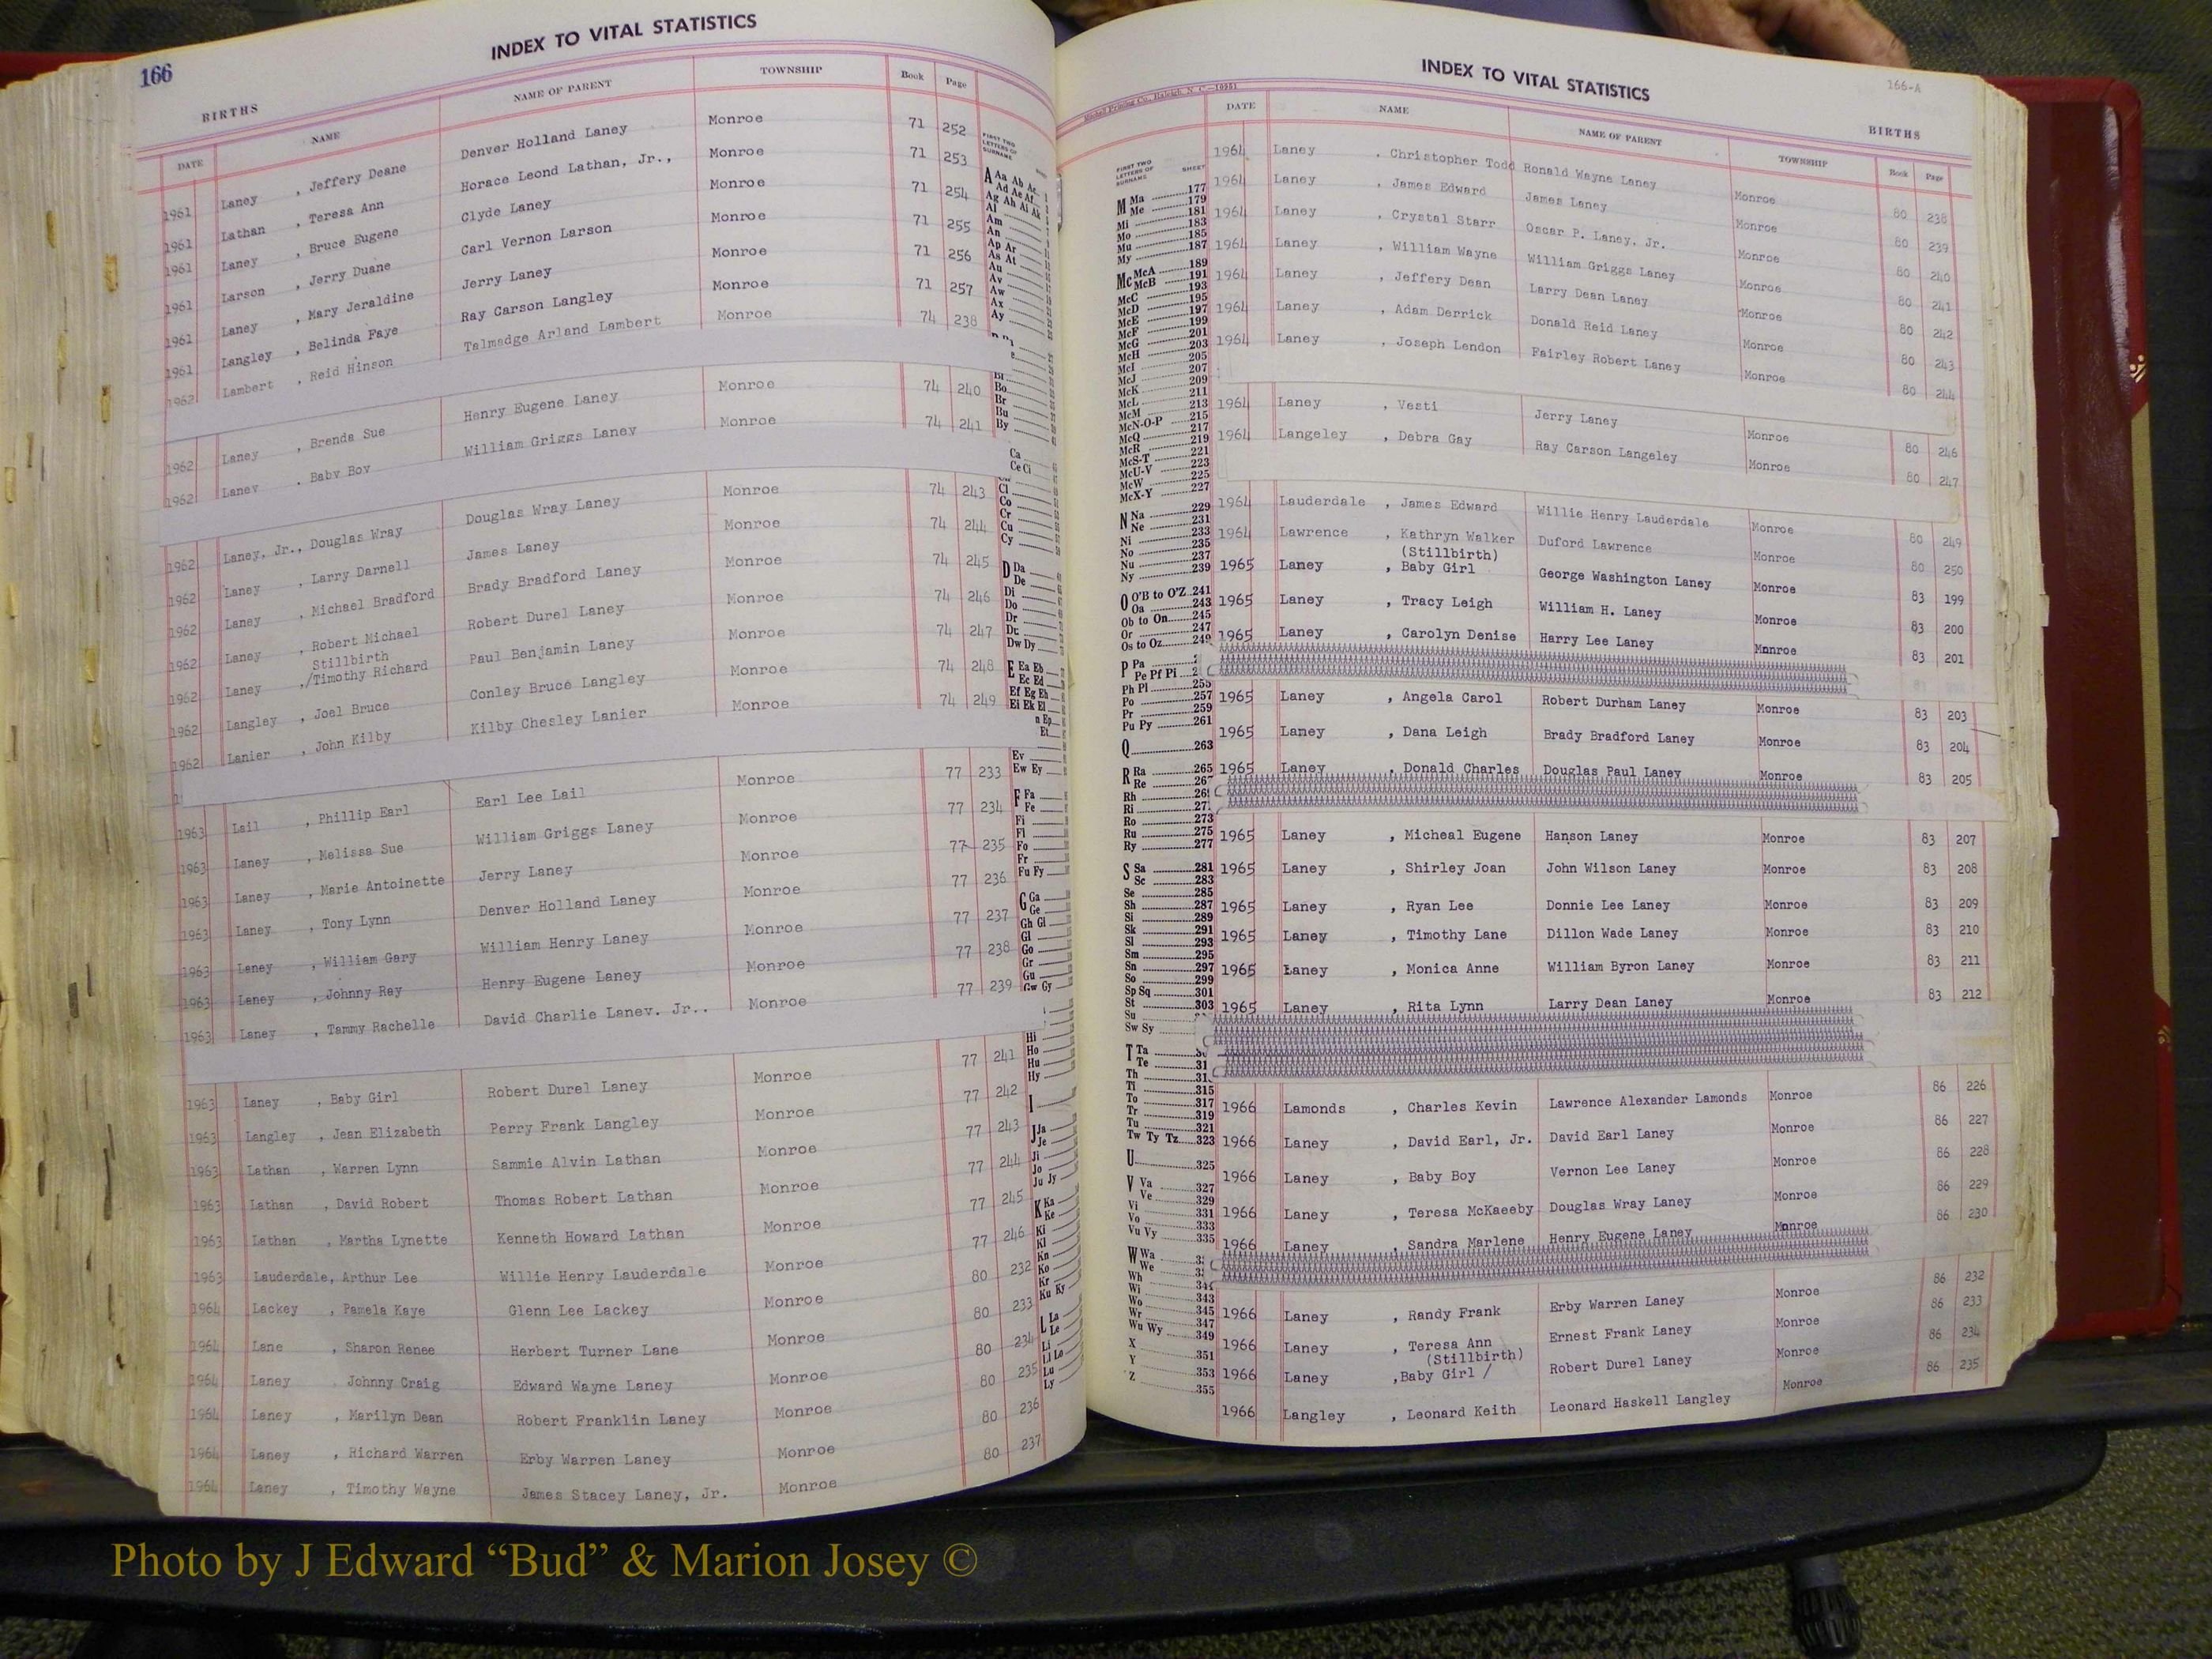 166
INDEX TO VITAL STATISTICS
BIRTHS
DATE NAME NAME OF PARENT TOWNSHIP Book Page
1961 Laney , Jeffery Deane Denver Holland Laney Monroe 71 252
1961 Lathan , Teresa Ann Horace Leond Lathan, Jr., Monroe 71 253
1961 Laney , Bruce Eugene Clyde Laney Monroe 71 254
1961 Larson , Jerry Duane Carl Vernon Larson Monroe 71 255
1961 Laney , Mary Jeraldine Jerry Laney Monroe 71 256
1961 Langley , Belinda Faye Ray Carson Langley Monroe 71 257
1962 Lambert , Reid Hinson Talmadge Arland Lambert Monroe 74 238
1962 Laney , Brenda Sue Henry Eugene Laney Monroe 74 240
1962 Laney , Baby Boy William Griggs Laney Monroe 74 241
1962 Laney, Jr., Douglas Wray Douglas Wray Laney Monroe 74 243
1962 Laney , Larry Darnell James Laney Monroe 74 244
1962 Laney , Michael Bradford Brady Bradford Laney Monroe 74 245
1962 Laney , Robert Michael Robert Durel Laney Monroe 74 246
Stillbirth
1962 Laney ,/Timothy Richard Paul Benjamin Laney Monroe 74 247
1962 Langley , Joel Bruce Conley Bruce Langley Monroe 74 248
1962 Lanier , John Kilby Kilby Chesley Lanier Monroe 74 249
1963 Lail , Phillip Earl Earl Lee Lail Monroe 77 233
1963 Laney , Melissa Sue William Griggs Laney Monroe 77 234
1963 Laney , Marie Antoinette Jerry Laney Monroe 77 235
1963 Laney , Tony Lynn Denver Holland Laney Monroe 77 236
1963 Laney , William Gary William Henry Laney Monroe 77 237
1963 Laney , Johnny Ray Henry Eugene Laney Monroe 77 238
1963 Laney , Tammy Rachelle David Charlie Laney, Jr., Monroe 77 239
1963 Laney , Baby Girl Robert Durel Laney Monroe 77 241
1963 Langley , Jean Elizabeth Perry Frank Langley Monroe 77 242
1963 Lathan , Warren Lynn Sammie Alvin Lathan Monroe 77 243
1963 Lathan , David Robert Thomas Robert Lathan Monroe 77 244
1963 Lathan , Martha Lynette Kenneth Howard Lathan Monroe 77 245
1963 Lauderdale, Arthur Lee Willie Henry Lauderdale Monroe 77 246
1964 Lackey , Pamela Kaye Glenn Lee Lackey Monroe 80 232
1964 Lane , Sharon Renee Herbert Turner Lane Monroe 80 233
1964 Laney , Johnny Craig Edward Wayne Laney Monroe 80 234
1964 Laney , Marilyn Dean Robert Franklin Laney Monroe 80 235
1964 Laney , Richard Warren Erby Warren Laney Monroe 80 236
1964 Laney , Timothy Wayne James Stacey Laney, Jr. Monroe 80 237
FIRST TWO
LETTERS OF
SURNAME
A Aa Ab Ac
Ad Ae Af
Ag Ah Ai Ak
Al
Am
An
Ap Ar
As At
Au
Av
Aw
Ax
Ay
Bo
Br
Bu
By
Ca
Ce Ci
Cl
Co
Cr
Cu
Cy
D Da
De
Di
Do
Dr
Du
Dw Dy
E Ea Eb
Ec Ed
Ef Eg Eh
Ei Ek El
Ev
Ew Ey
F Fa
Fe
Fi
Fl
Fo
Fr
Fu Fy
G Ga
Ge
Gh Gi
Gl
Go
Gr
Gu
Gw Gy
Hi
Ho
Hu
Hy
I
J Ja
Je
Ji
Jo
Ju Jy
K Ka
Ke
Ki
Kl
Kn
Ko
Kr
Ku Ky
L La
Le
Li
Ll Lo
Lu
Ly
INDEX TO VITAL STATISTICS
166-A
BIRTHS
DATE NAME NAME OF PARENT TOWNSHIP Book Page
1964 Laney , Christopher Todd Ronald Wayne Laney Monroe 80 238
1964 Laney , James Edward James Laney Monroe 80 239
1964 Laney , Crystal Starr Oscar P. Laney, Jr. Monroe 80 240
1964 Laney , William Wayne William Griggs Laney Monroe 80 241
1964 Laney , Jeffery Dean Larry Dean Laney Monroe 80 242
1964 Laney , Adam Derrick Donald Reid Laney Monroe 80 243
1964 Laney , Joseph Lendon Fairley Robert Laney Monroe 80 244
1964 Laney , Vesti Jerry Laney Monroe 80 246
1964 Langeley , Debra Gay Ray Carson Langeley Monroe 80 247
1964 Lauderdale , James Edward Willie Henry Lauderdale Monroe 80 249
1964 Lawrence , Kathryn Walker Duford Lawrence Monroe 80 250
(Stillbirth)
1965 Laney , Baby Girl George Washington Laney Monroe 83 199
1965 Laney , Tracy Leigh William H. Laney Monroe 83 200
1965 Laney , Carolyn Denise Harry Lee Laney Monroe 83 201
1965 Laney , Angela Carol Robert Durham Laney Monroe 83 203
1965 Laney , Dana Leigh Brady Bradford Laney Monroe 83 204
1965 Laney , Donald Charles Douglas Paul Laney Monroe 83 205
1965 Laney , Micheal Eugene Hanson Laney Monroe 83 207
1965 Laney , Shirley Joan John Wilson Laney Monroe 83 208
1965 Laney , Ryan Lee Donnie Lee Laney Monroe 83 209
1965 Laney , Timothy Lane Dillon Wade Laney Monroe 83 210
1965 Laney , Monica Anne William Byron Laney Monroe 83 211
1965 Laney , Rita Lynn Larry Dean Laney Monroe 83 212
1966 Lamonds , Charles Kevin Lawrence Alexander Lamonds Monroe 86 226
1966 Laney , David Earl, Jr. David Earl Laney Monroe 86 227
1966 Laney , Baby Boy Vernon Lee Laney Monroe 86 228
1966 Laney , Teresa McKaeeby Douglas Wray Laney Monroe 86 229
1966 Laney , Sandra Marlene Henry Eugene Laney Monroe 86 230
1966 Laney , Randy Frank Erby Warren Laney Monroe 86 232
1966 Laney , Teresa Ann Ernest Frank Laney Monroe 86 233
(Stillbirth)
1966 Laney ,Baby Girl / Robert Durel Laney Monroe 86 234
1966 Langley , Leonard Keith Leonard Haskell Langley Monroe 86 235
FIRST TWO
LETTERS OF
SURNAME SHEET
M Ma 177
Me 179
Mi 181
Mo 183
Mu 185
My 187
Mc McA 189
McB 191
McC 193
McD 195
McE 197
McF 199
McG 201
McH 203
McI 205
McJ 207
McK 209
McL 211
McM 213
McN-O-P 215
McQ 217
McR 219
McS-T 221
McU-V 223
McW 225
McX-Y 227
N Na 229
Ne 231
Ni 233
No 235
Nu 237
Ny 239
O O'B to O'Z 241
Oa 243
Ob to On 245
Or 247
Os to Oz 249
P Pa
Pe Pf Pi
Ph Pl 255
Po 257
Pr 259
Pu Py 261
Q 263
R Ra 265
Re 267
Rh
Ri
Ro 273
Ru 275
Ry 277
S Sa 281
Sc 283
Se 285
Sh 287
Si 289
Sk 291
Sl 293
Sm 295
Sn 297
So 299
Sp Sq 301
St 303
Su
Sw Sy
T Ta
Te
Th
Ti 315
To 317
Tr 319
Tu 321
Tw Ty Tz 323
U 325
V Va 327
Ve 329
Vi 331
Vo 333
Vu Vy 335
W Wa
We
Wh
Wi 343
Wo 345
Wr 347
Wu Wy 349
X 351
Y 353
Z 355
Photo by J Edward “Bud” & Marion Josey ©